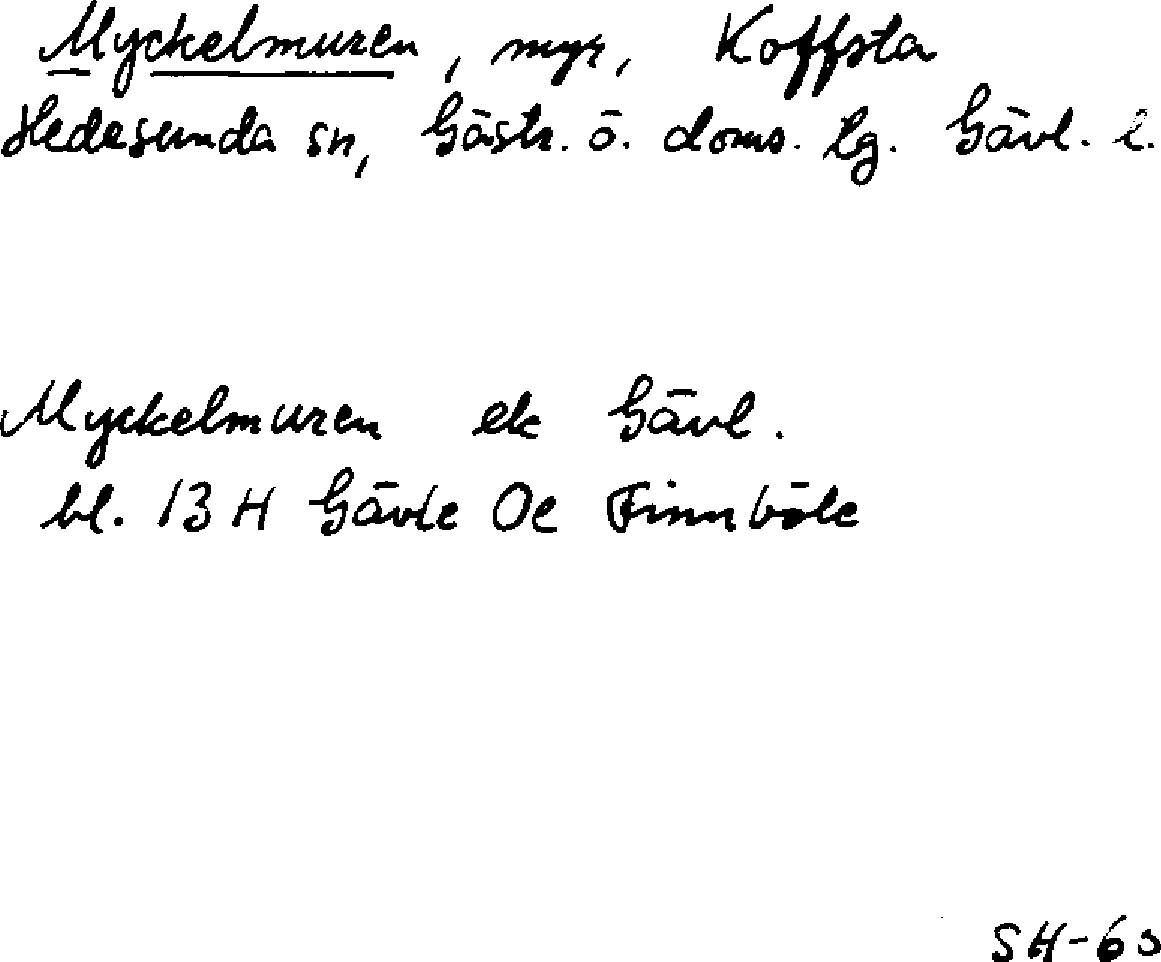 Myckelmuren, myr, Koffsta
Hedesunda sn, Gästr. ö. doms. lg. Gävl. l.
Myckelmuren ek Gävl.
bl. 13 H Gävle 0e Finnböle
SH-63